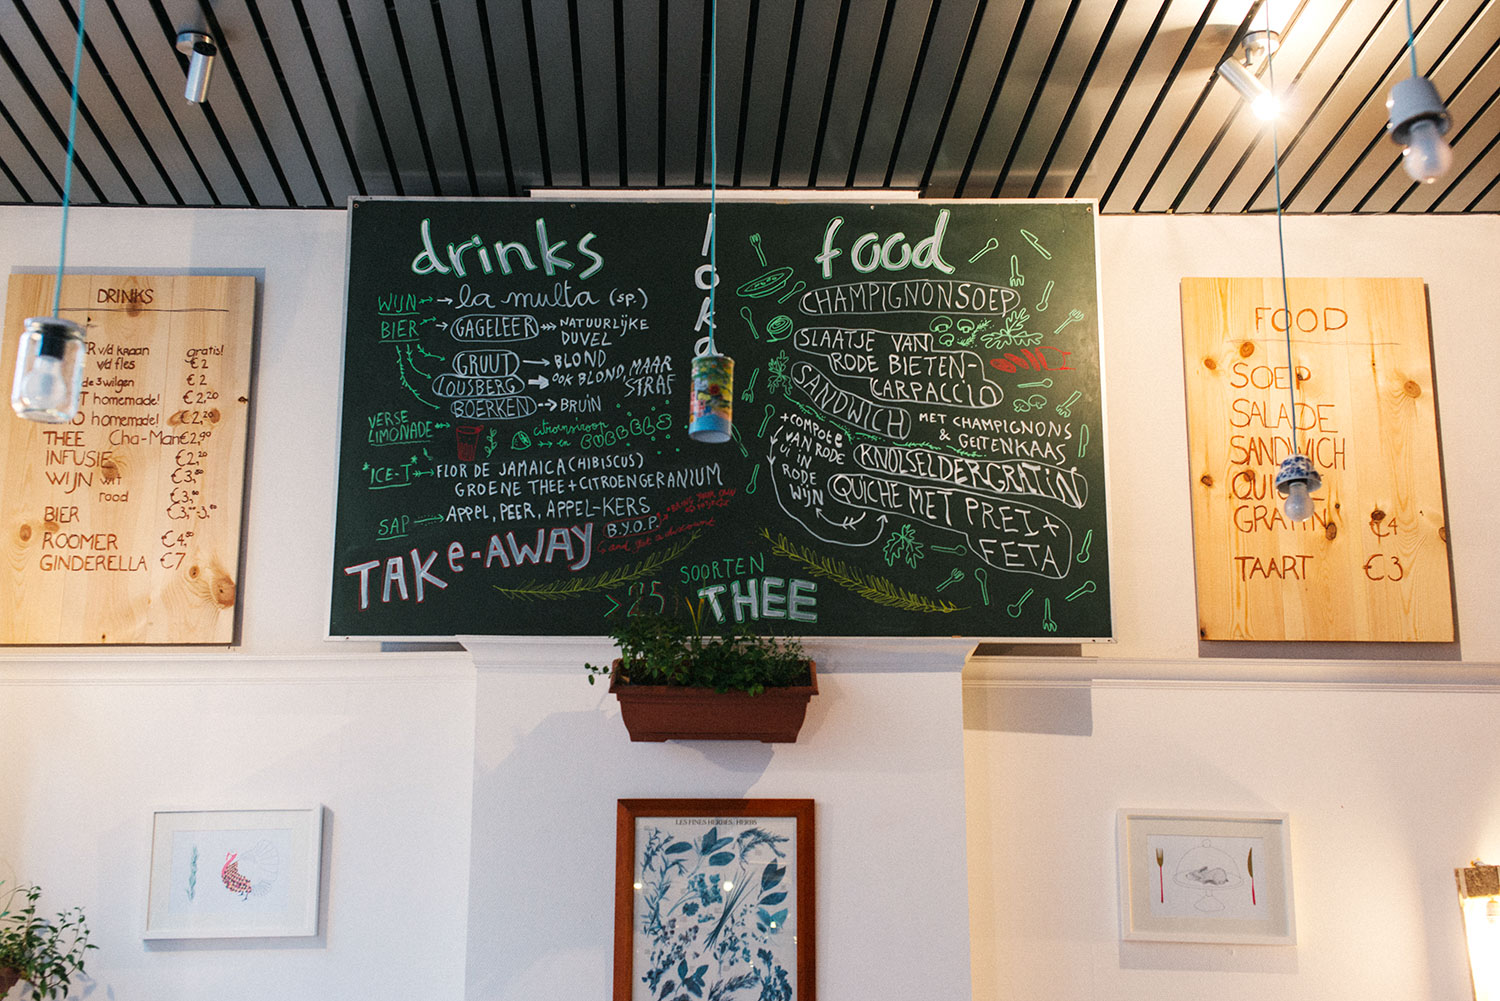 DRINKS
v/d kraan gratis!
v/d fles € 2
de 3 wilgen € 2
homemade! € 2,20
homemade! € 2,20
THEE Cha-Man €2,90
INFUSIE € 2,20
WIJN wit € 3,80
rood € 3,80
BIER
ROOMER €4,80
GINDERELLA €7
drinks
WIJN → la multa (sp.)
BIER → GAGELEER → NATUURLIJKE
DUVEL
GRUUT → BLOND
LOUSBERG → OOK BLOND, MAAR
STRAF
BOERKEN → BRUIN
VERSE
LIMONADE citroensiroop
en BUBBELS
"ICE-T" → FLOR DE JAMAICA (HIBISCUS)
GROENE THEE + CITROENGERANIUM
SAP → APPEL, PEER, APPEL-KERS
TAKE-AWAY
B.Y.O.P. → BRING YOUR OWN
and get a discount
lok
food
CHAMPIGNONSOEP
SLAATJE VAN
RODE BIETEN-
CARPACCIO
SANDWICH MET CHAMPIGNONS
& GEITENKAAS
+ COMPOTE
VAN RODE
UI IN
RODE
WIJN
KNOLSELDERGRATIN
QUICHE MET PREI +
FETA
> 25 SOORTEN
THEE
FOOD
SOEP
SALADE
SANDWICH
QUICHE
GRATIN €4
TAART €3
LES FINES HERBES / HERBS